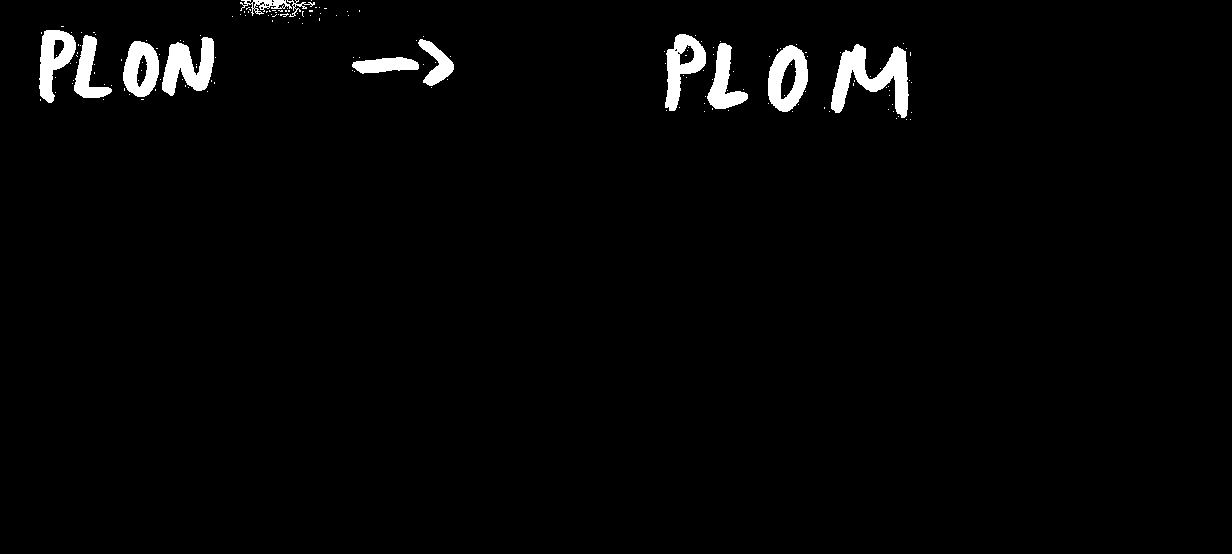 PLON → PLOM